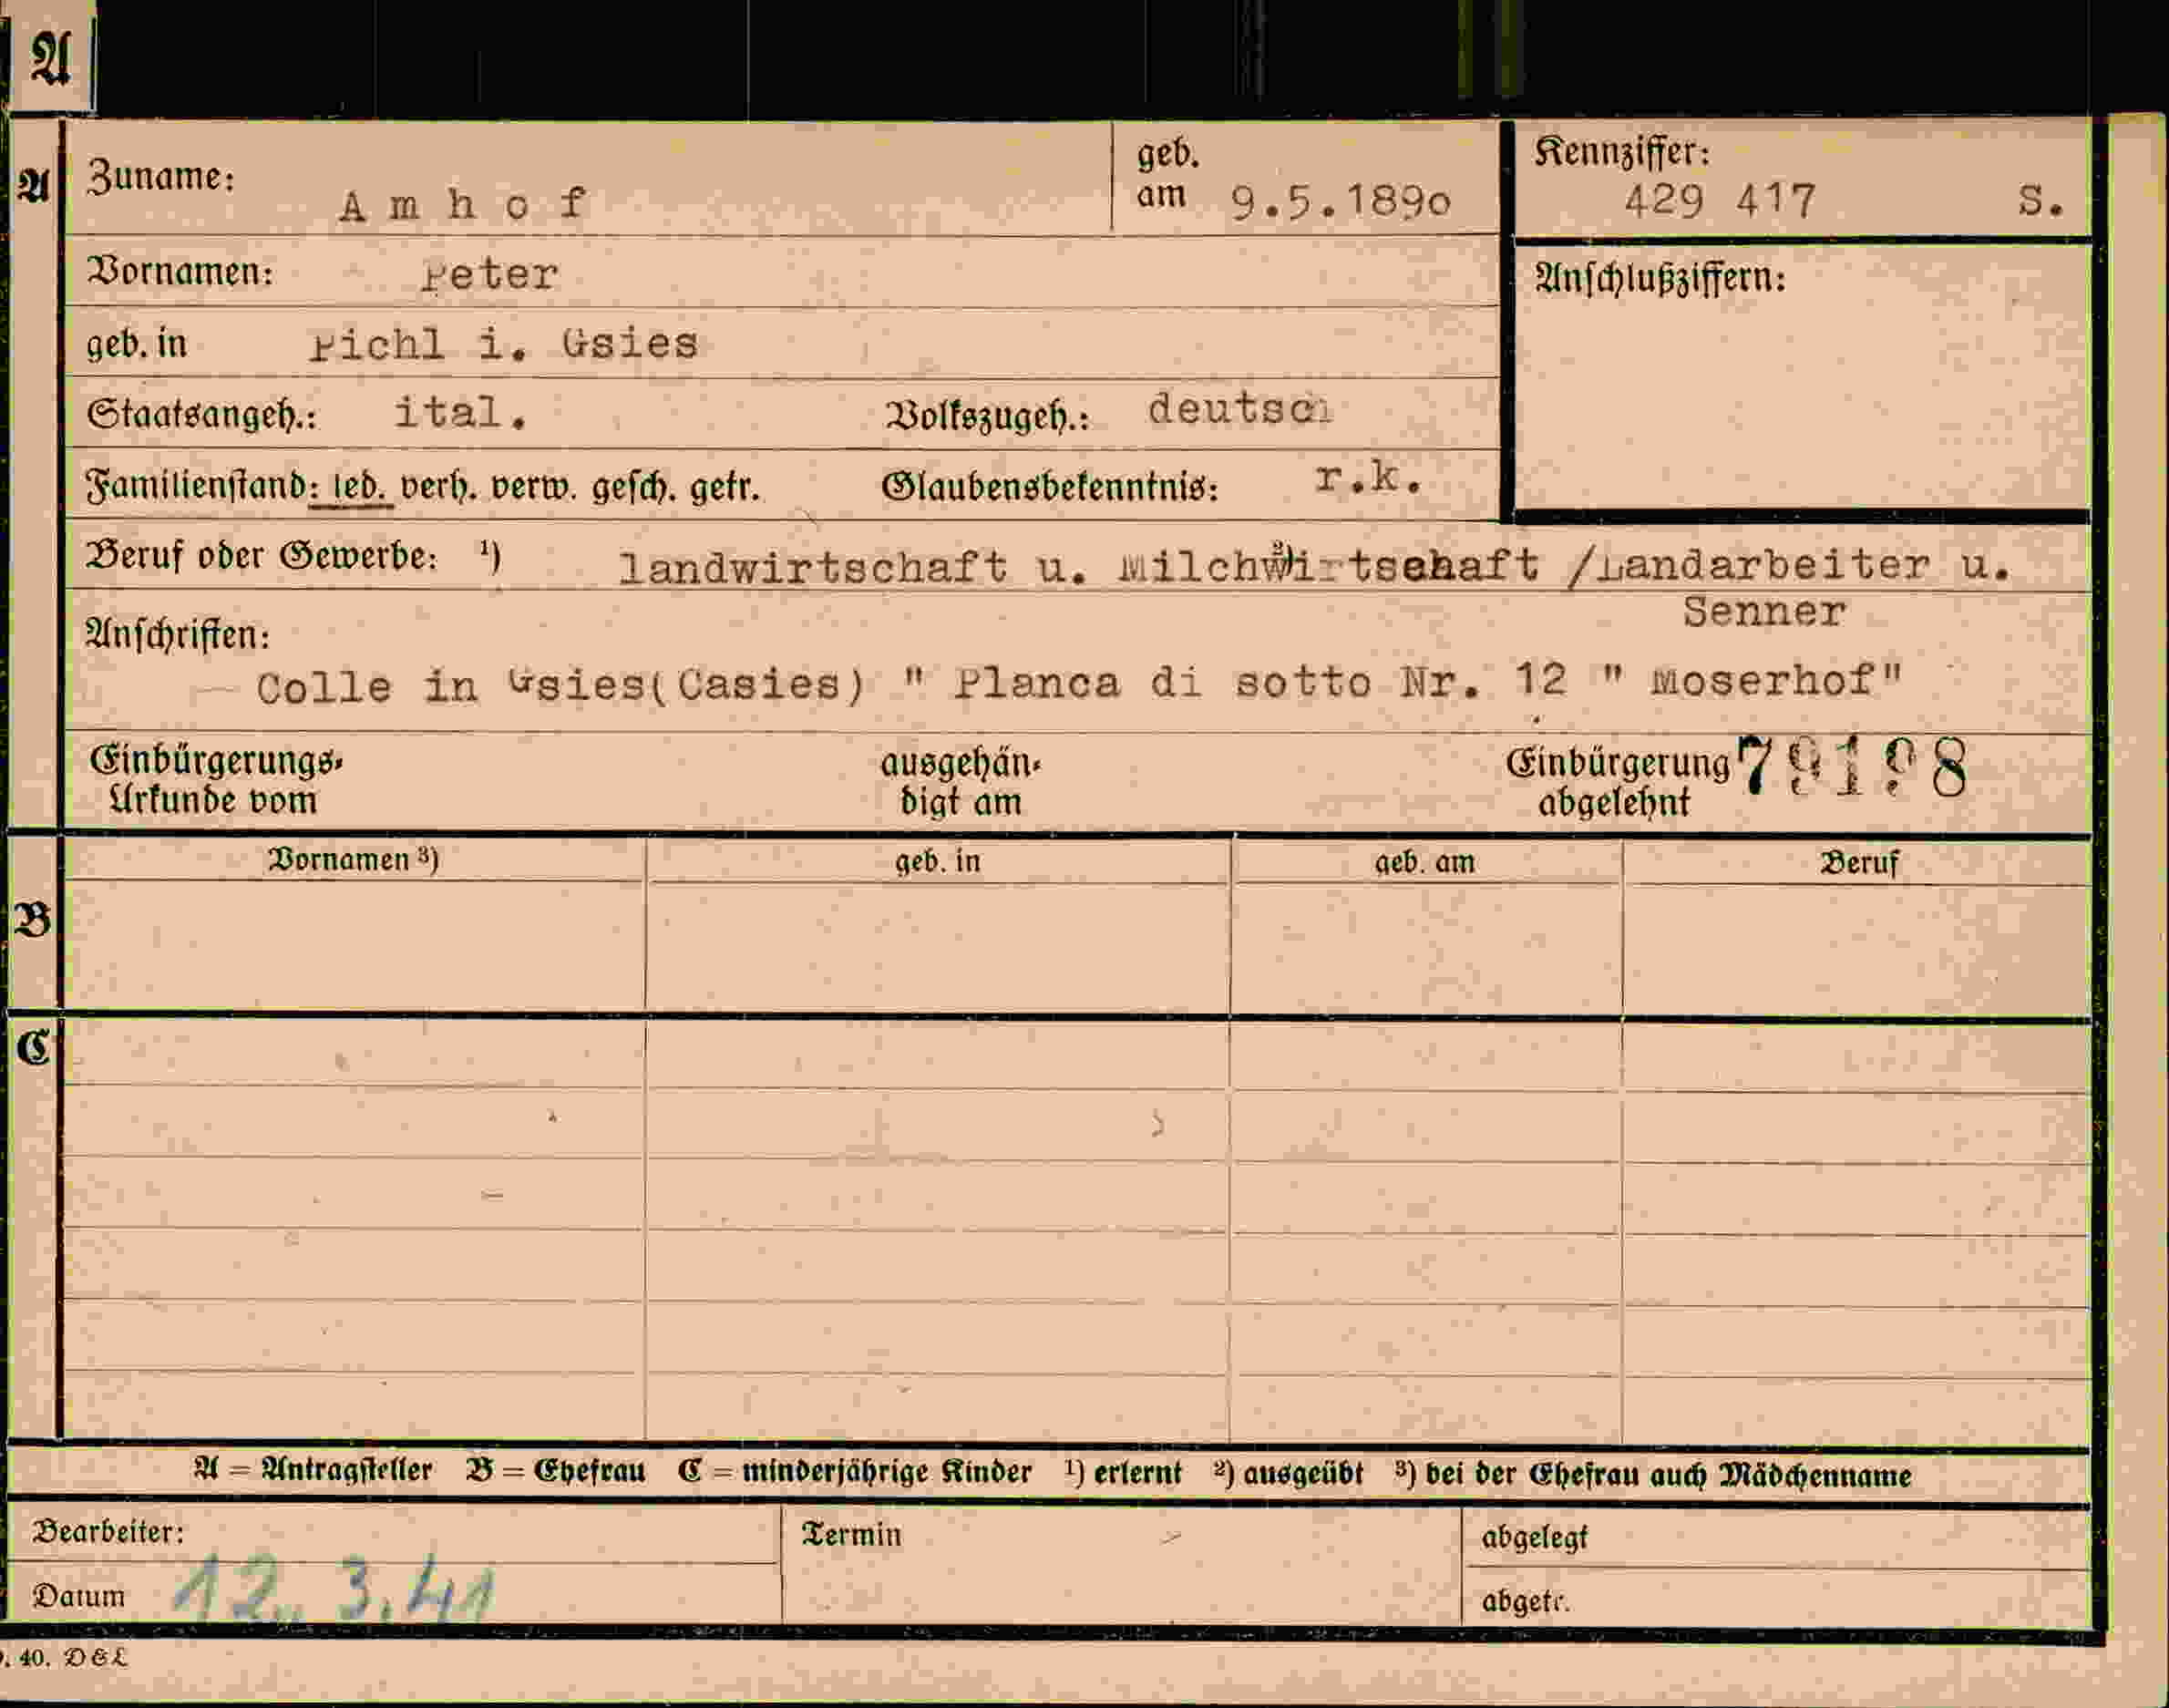 A
A
Zuname: Amhof geb. am 9.5.1890 Kennziffer: 429 417 S.
Vornamen: Peter Anschlußziffern:
geb. in Pichl i. Gsies
Staatsangeh.: ital. Volkszugeh.: deutsch
Familienstand: led. verh. verw. gesch. getr. Glaubensbekenntnis: r.k.
Beruf oder Gewerbe: ¹) landwirtschaft u. Milchwirtschaft ²) /Landarbeiter u.
Senner
Anschriften:
Colle in Gsies(Casies) " Planca di sotto Nr. 12 " Moserhof"
Einbürgerungs- ausgehän- Einbürgerung
Urkunde vom digt am abgelehnt
B
Vornamen ³) geb. in geb. am Beruf
C
A = Antragsteller B = Ehefrau C = minderjährige Kinder ¹) erlernt ²) ausgeübt ³) bei der Ehefrau auch Mädchenname
Bearbeiter: Termin abgelegt
Datum 12. 3. 41 abgetr.
40. D&L